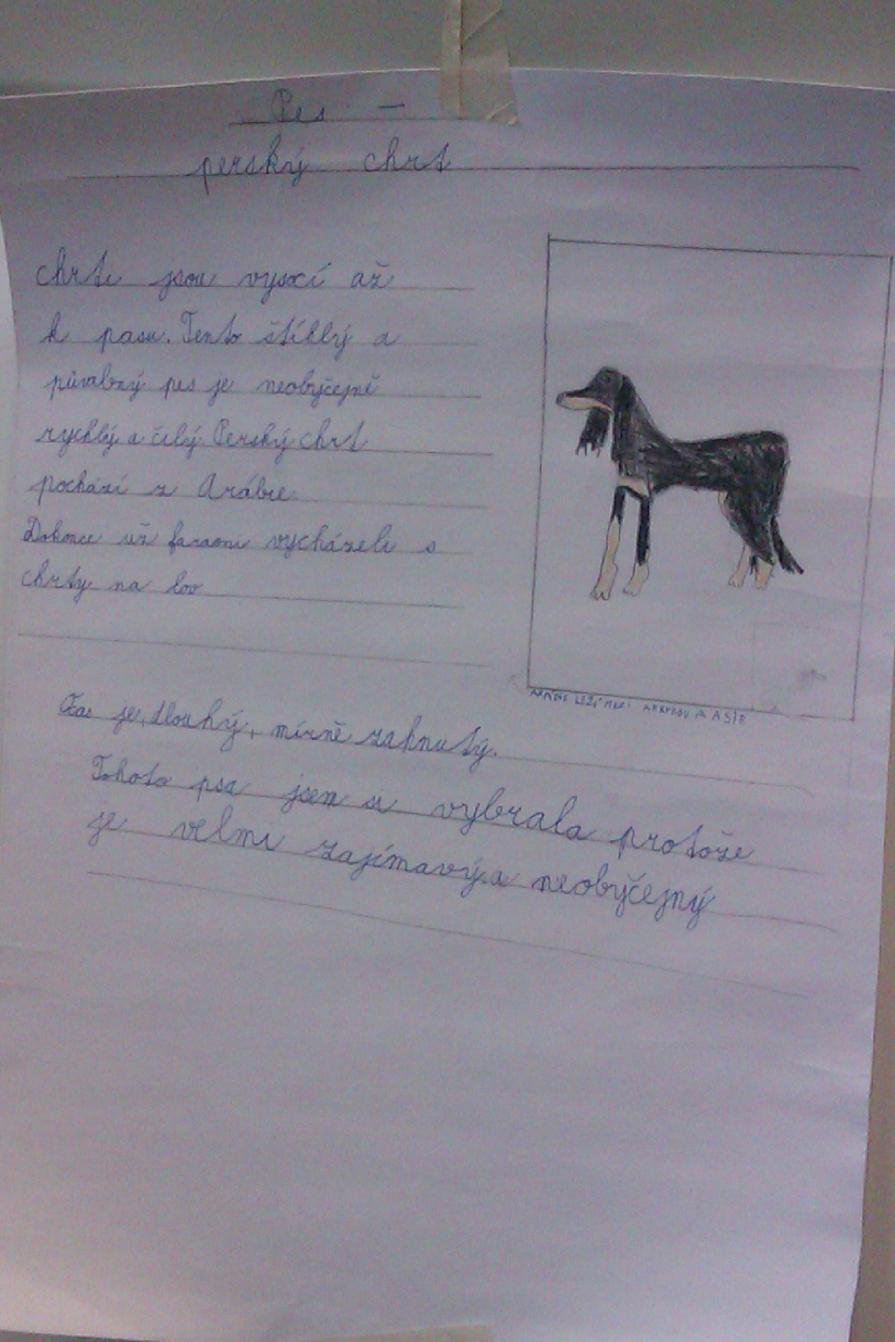 Pes -
perský chrt
chrti jsou vysocí až
k pasu. Tento štíhlý a
půvabný pes je neobyčejně
rychlý a čilý. Perský chrt
pochází z Arábie.
Dokonce už faraoni vycházeli s
chrty na lov
ARÁBIE LEŽÍ MEZI AFRYKOU A ASIÍ
Ocas je, dlouhý, mírně zahnutý.
Tohoto psa jsem si vybrala protože
je velmi zajímavý a neobyčejný